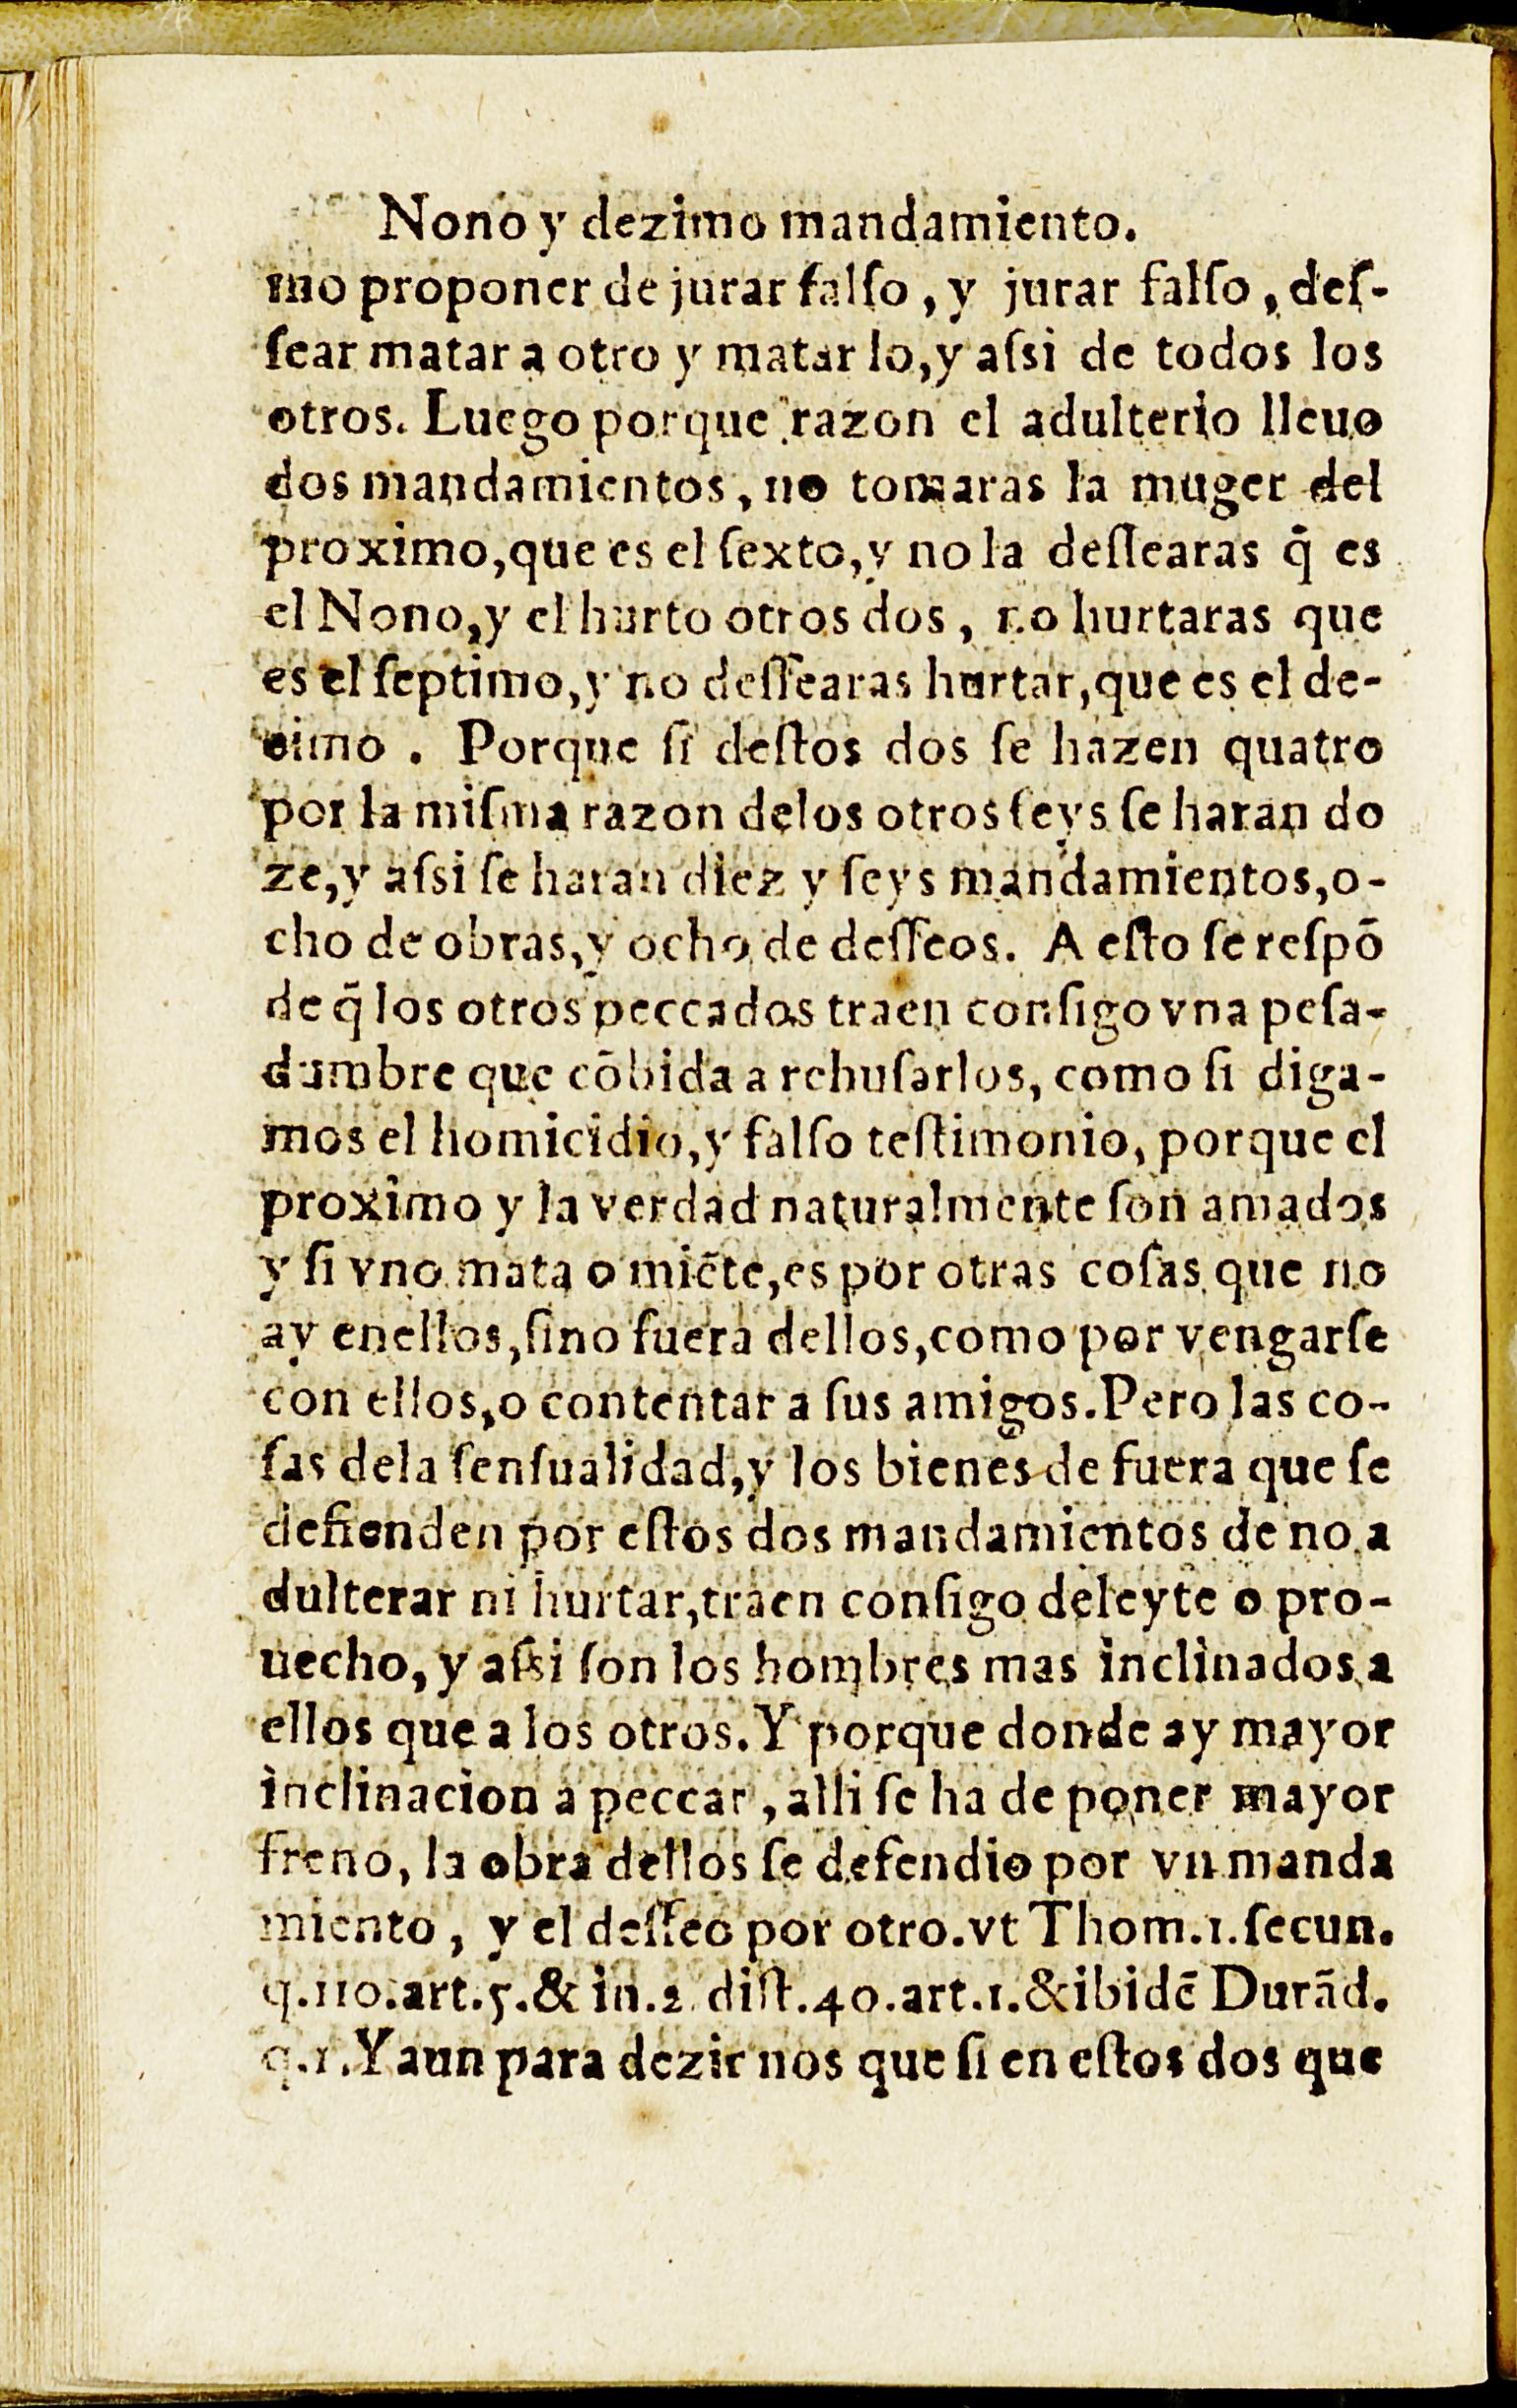 Nono y dezimo mandamiento.
mo proponer de jurar falſo, y jurar falſo, deſ-
ſear matar a otro y matar lo, y aſsi de todos los
otros. Luego porque razon el adulterio lleuo
dos mandamientos, no tomaras la muger del
proximo, que es el ſexto, y no la deſſearas q̃ es
el Nono, y el hurto otros dos, no hurtaras que
es el ſeptimo, y no deſſearas hurtar, que es el de-
cimo. Porque ſi deſtos dos ſe hazen quatro
por la miſma razon delos otros ſeys ſe haran do
ze, y aſsi ſe haran diez y ſeys mandamientos, o-
cho de obras, y ocho de deſſeos. A eſto ſe reſpõ
de q̃ los otros peccados traen conſigo vna peſa-
dumbre que cõbida a rehuſarlos, como ſi diga-
mos el homicidio, y falſo teſtimonio, porque el
proximo y la verdad naturalmente ſon amados
y ſi vno mata o miẽte, es por otras coſas que no
ay enellos, ſino fuera dellos, como por vengarſe
con ellos, o contentar a ſus amigos. Pero las co-
ſas dela ſenſualidad, y los bienes de fuera que ſe
defienden por eſtos dos mandamientos de no a
dulterar ni hurtar, traen conſigo deleyte o pro-
uecho, y aſsi ſon los hombres mas inclinados a
ellos que a los otros. Y porque donde ay mayor
inclinacion a peccar, alli ſe ha de poner mayor
freno, la obra dellos ſe defendio por vn manda
miento, y el deſſeo por otro. vt Thom. 1. ſecun.
q. 110. art. 5. & in. 2. diſt. 40. art. 1. & ibidẽ Durãd.
q. 1. Y aun para dezir nos que ſi en eſtos dos que